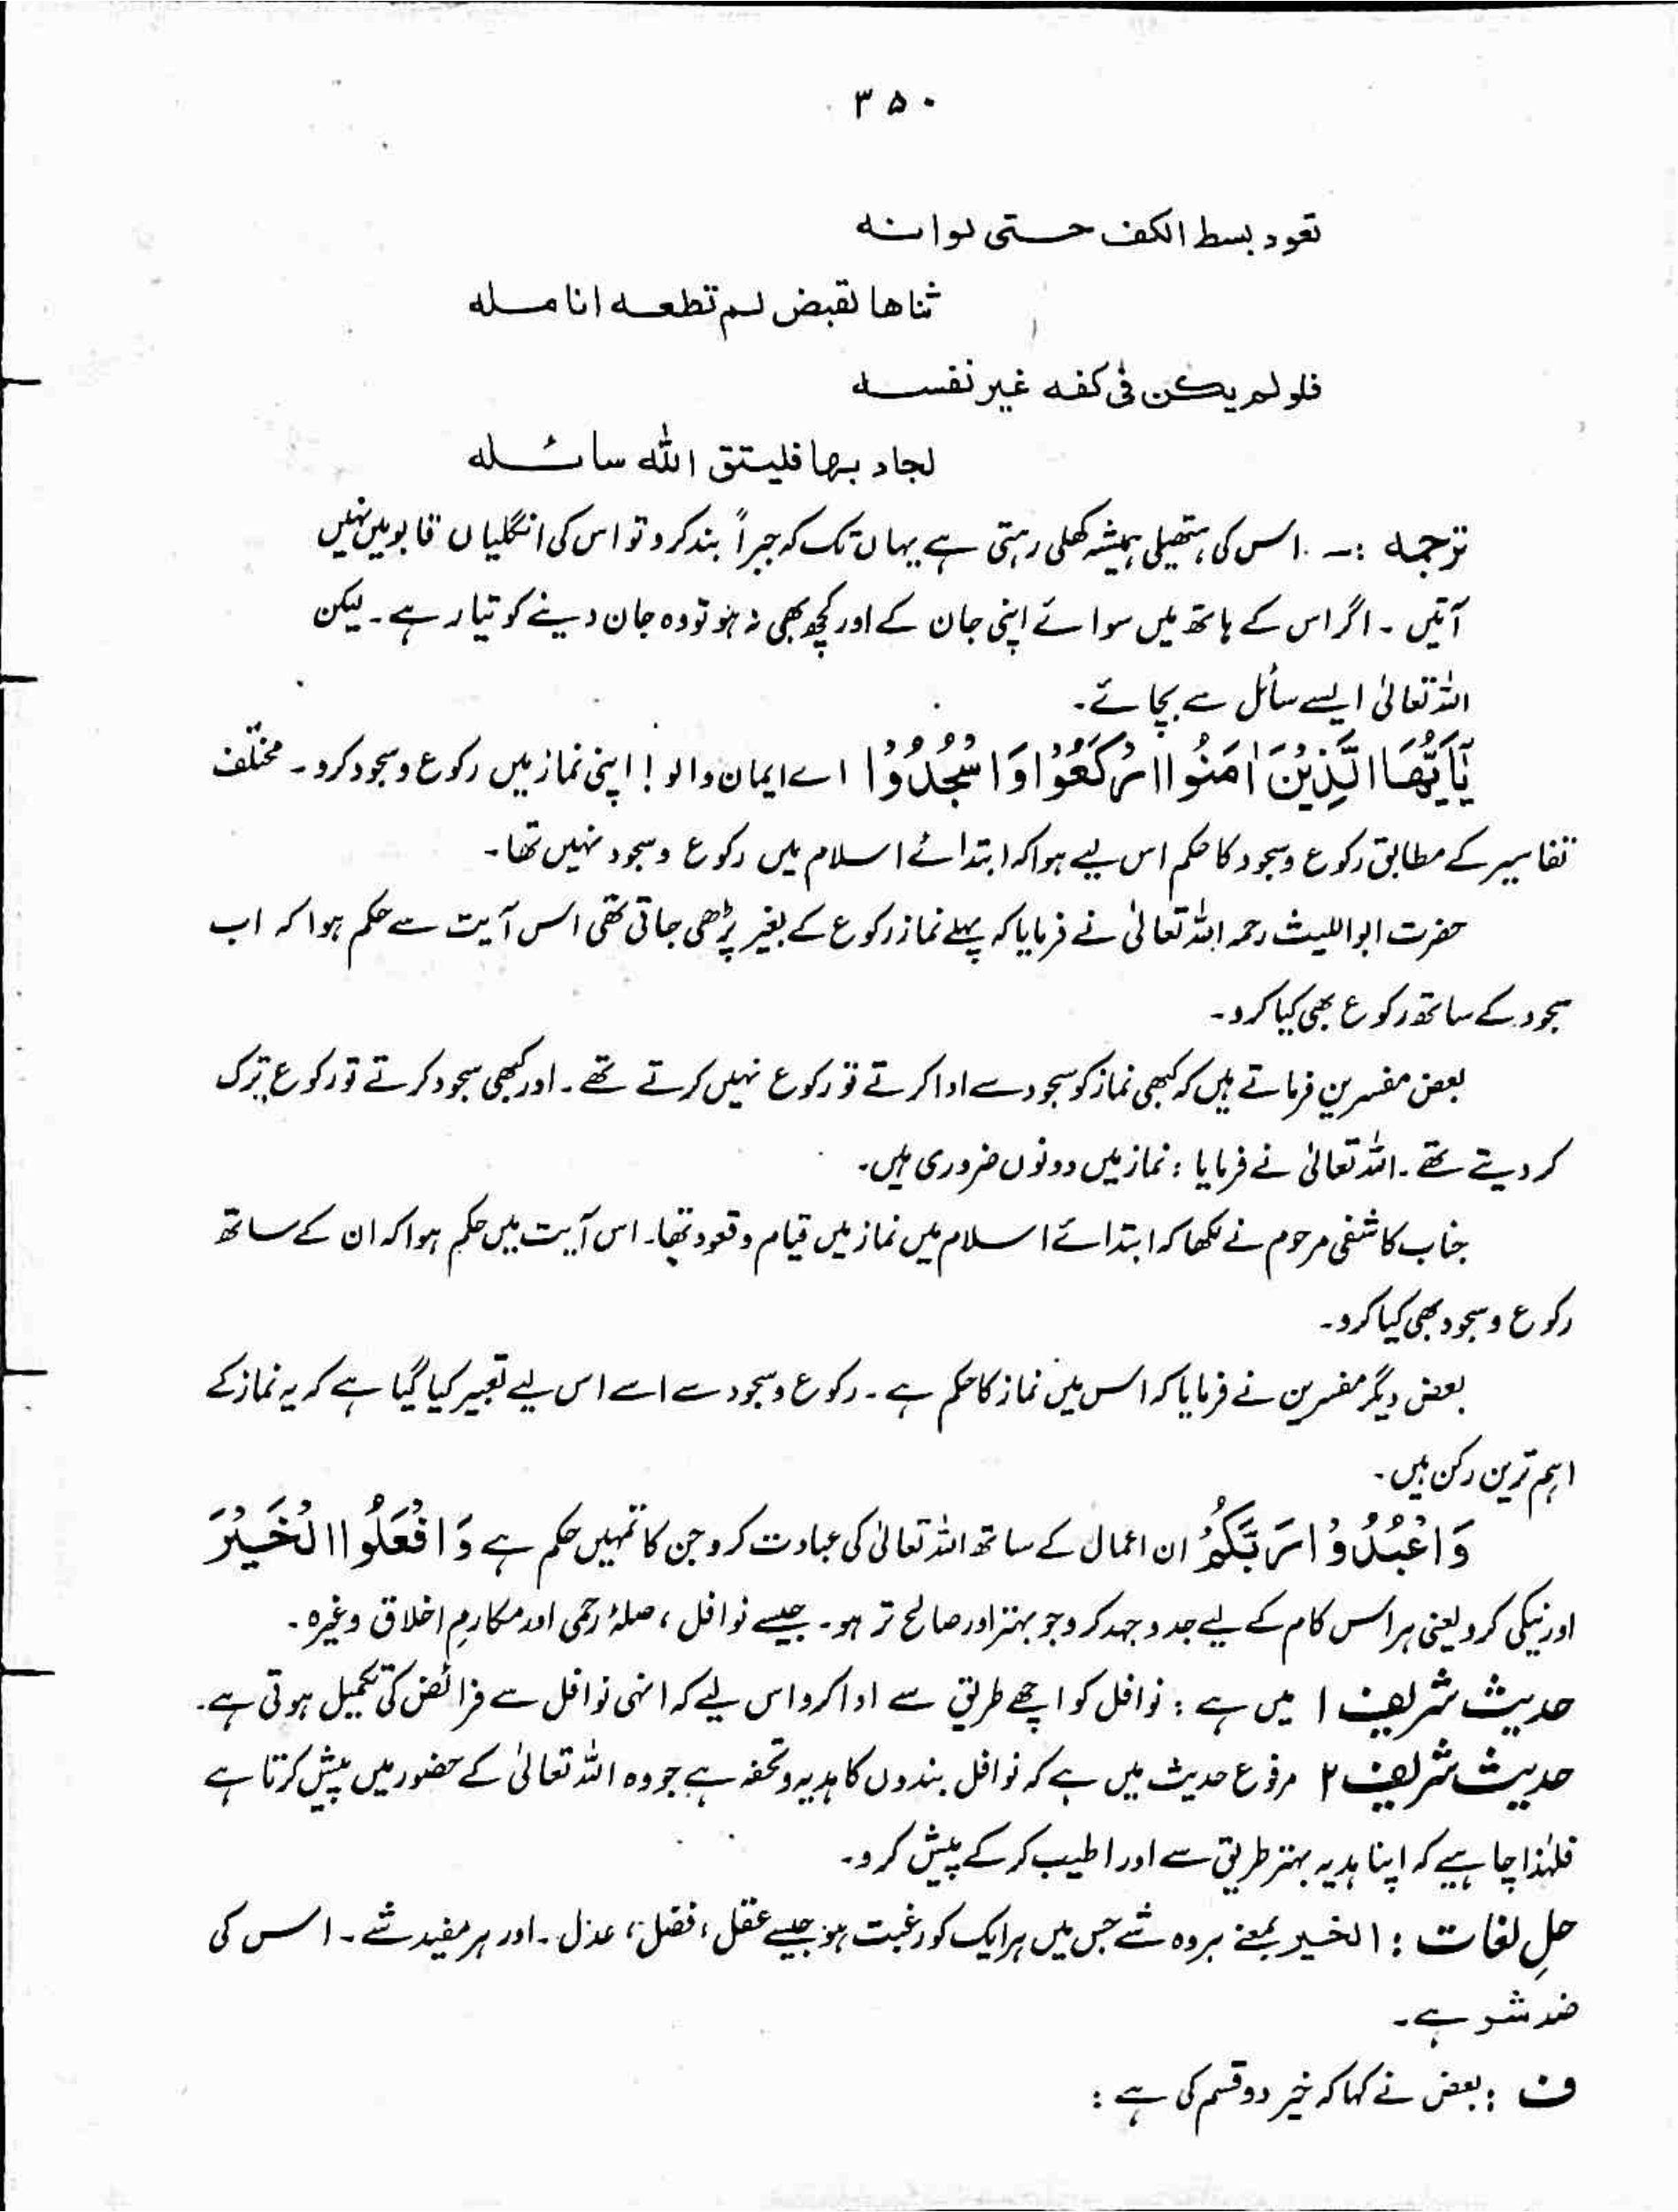 ۳۵۰
تعود بسط الکف حستی لوانه
ثناها لقبض لم تطعه انامله
فلو لم یکن فی کفه غیر نفسه
لجاد بها فلیتق اللّٰه سائله
ترجمہ :۔ اس کی ہتھیلی ہمیشہ کھلی رہتی ہے یہاں تک کہ جبراً بند کرو تو اس کی انگلیاں قابو میں نہیں
آتیں ۔ اگر اس کے ہاتھ میں سوائے اپنی جان کے اور کچھ بھی نہ ہو تو وہ جان دینے کو تیار ہے ۔ لیکن
اللہ تعالیٰ ایسے سائل سے بچائے ۔
یٰٓاَیُّھَا الَّذِیْنَ اٰمَنُوا ارْکَعُوْا وَاسْجُدُوْا اے ایمان والو ! اپنی نماز میں رکوع و سجود کرو ۔ مختلف
تفاسیر کے مطابق رکوع و سجود کا حکم اس لیے ہوا کہ ابتدائے اسلام میں رکوع و سجود نہیں تھا ۔
حضرت ابو اللیث رحمہ اللہ تعالیٰ نے فرمایا کہ پہلے نماز رکوع کے بغیر پڑھی جاتی تھی اس آیت سے حکم ہوا کہ اب
سجود کے ساتھ رکوع بھی کیا کرو ۔
بعض مفسرین فرماتے ہیں کہ کبھی نماز کو سجود سے ادا کرتے تو رکوع نہیں کرتے تھے ۔ اور کبھی سجود کرتے تو رکوع ترک
کر دیتے تھے ۔ اللہ تعالیٰ نے فرمایا : نماز میں دونوں ضروری ہیں ۔
جناب کاشفی مرحوم نے لکھا کہ ابتدائے اسلام میں نماز میں قیام و قعود تھا ۔ اس آیت میں حکم ہوا کہ ان کے ساتھ
رکوع و سجود بھی کیا کرو ۔
بعض دیگر مفسرین نے فرمایا کہ اس میں نماز کا حکم ہے ۔ رکوع و سجود سے اسے اس لیے تعبیر کیا گیا ہے کہ یہ نماز کے
اہم ترین رکن ہیں ۔
وَاعْبُدُوْا رَبَّکُمْ ان اعمال کے ساتھ اللہ تعالیٰ کی عبادت کرو جن کا تمہیں حکم ہے وَافْعَلُوا الْخَیْرَ
اور نیکی کرو یعنی ہر اس کام کے لیے جدوجہد کرو جو بہتر اور صالح تر ہو ۔ جیسے نوافل ، صلۂ رحمی اور مکارمِ اخلاق وغیرہ ۔
حدیث شریف ۱ میں ہے : نوافل کو اچھے طریق سے ادا کرو اس لیے کہ انہی نوافل سے فرائض کی تکمیل ہوتی ہے ۔
حدیث شریف ۲ مرفوع حدیث میں ہے کہ نوافل بندوں کا ہدیہ و تحفہ ہے جو وہ اللہ تعالیٰ کے حضور میں پیش کرتا ہے
فلہٰذا چاہیے کہ اپنا ہدیہ بہتر طریق سے اور اطیب کر کے پیش کرو ۔
حلِ لغات : الخیر بمعنے ہر وہ شے جس میں ہر ایک کو رغبت ہو جیسے عقل ، فضل ، عدل ۔ اور ہر مفید شے ۔ اس کی
ضد شر ہے ۔
ف : بعض نے کہا کہ خیر دو قسم کی ہے :